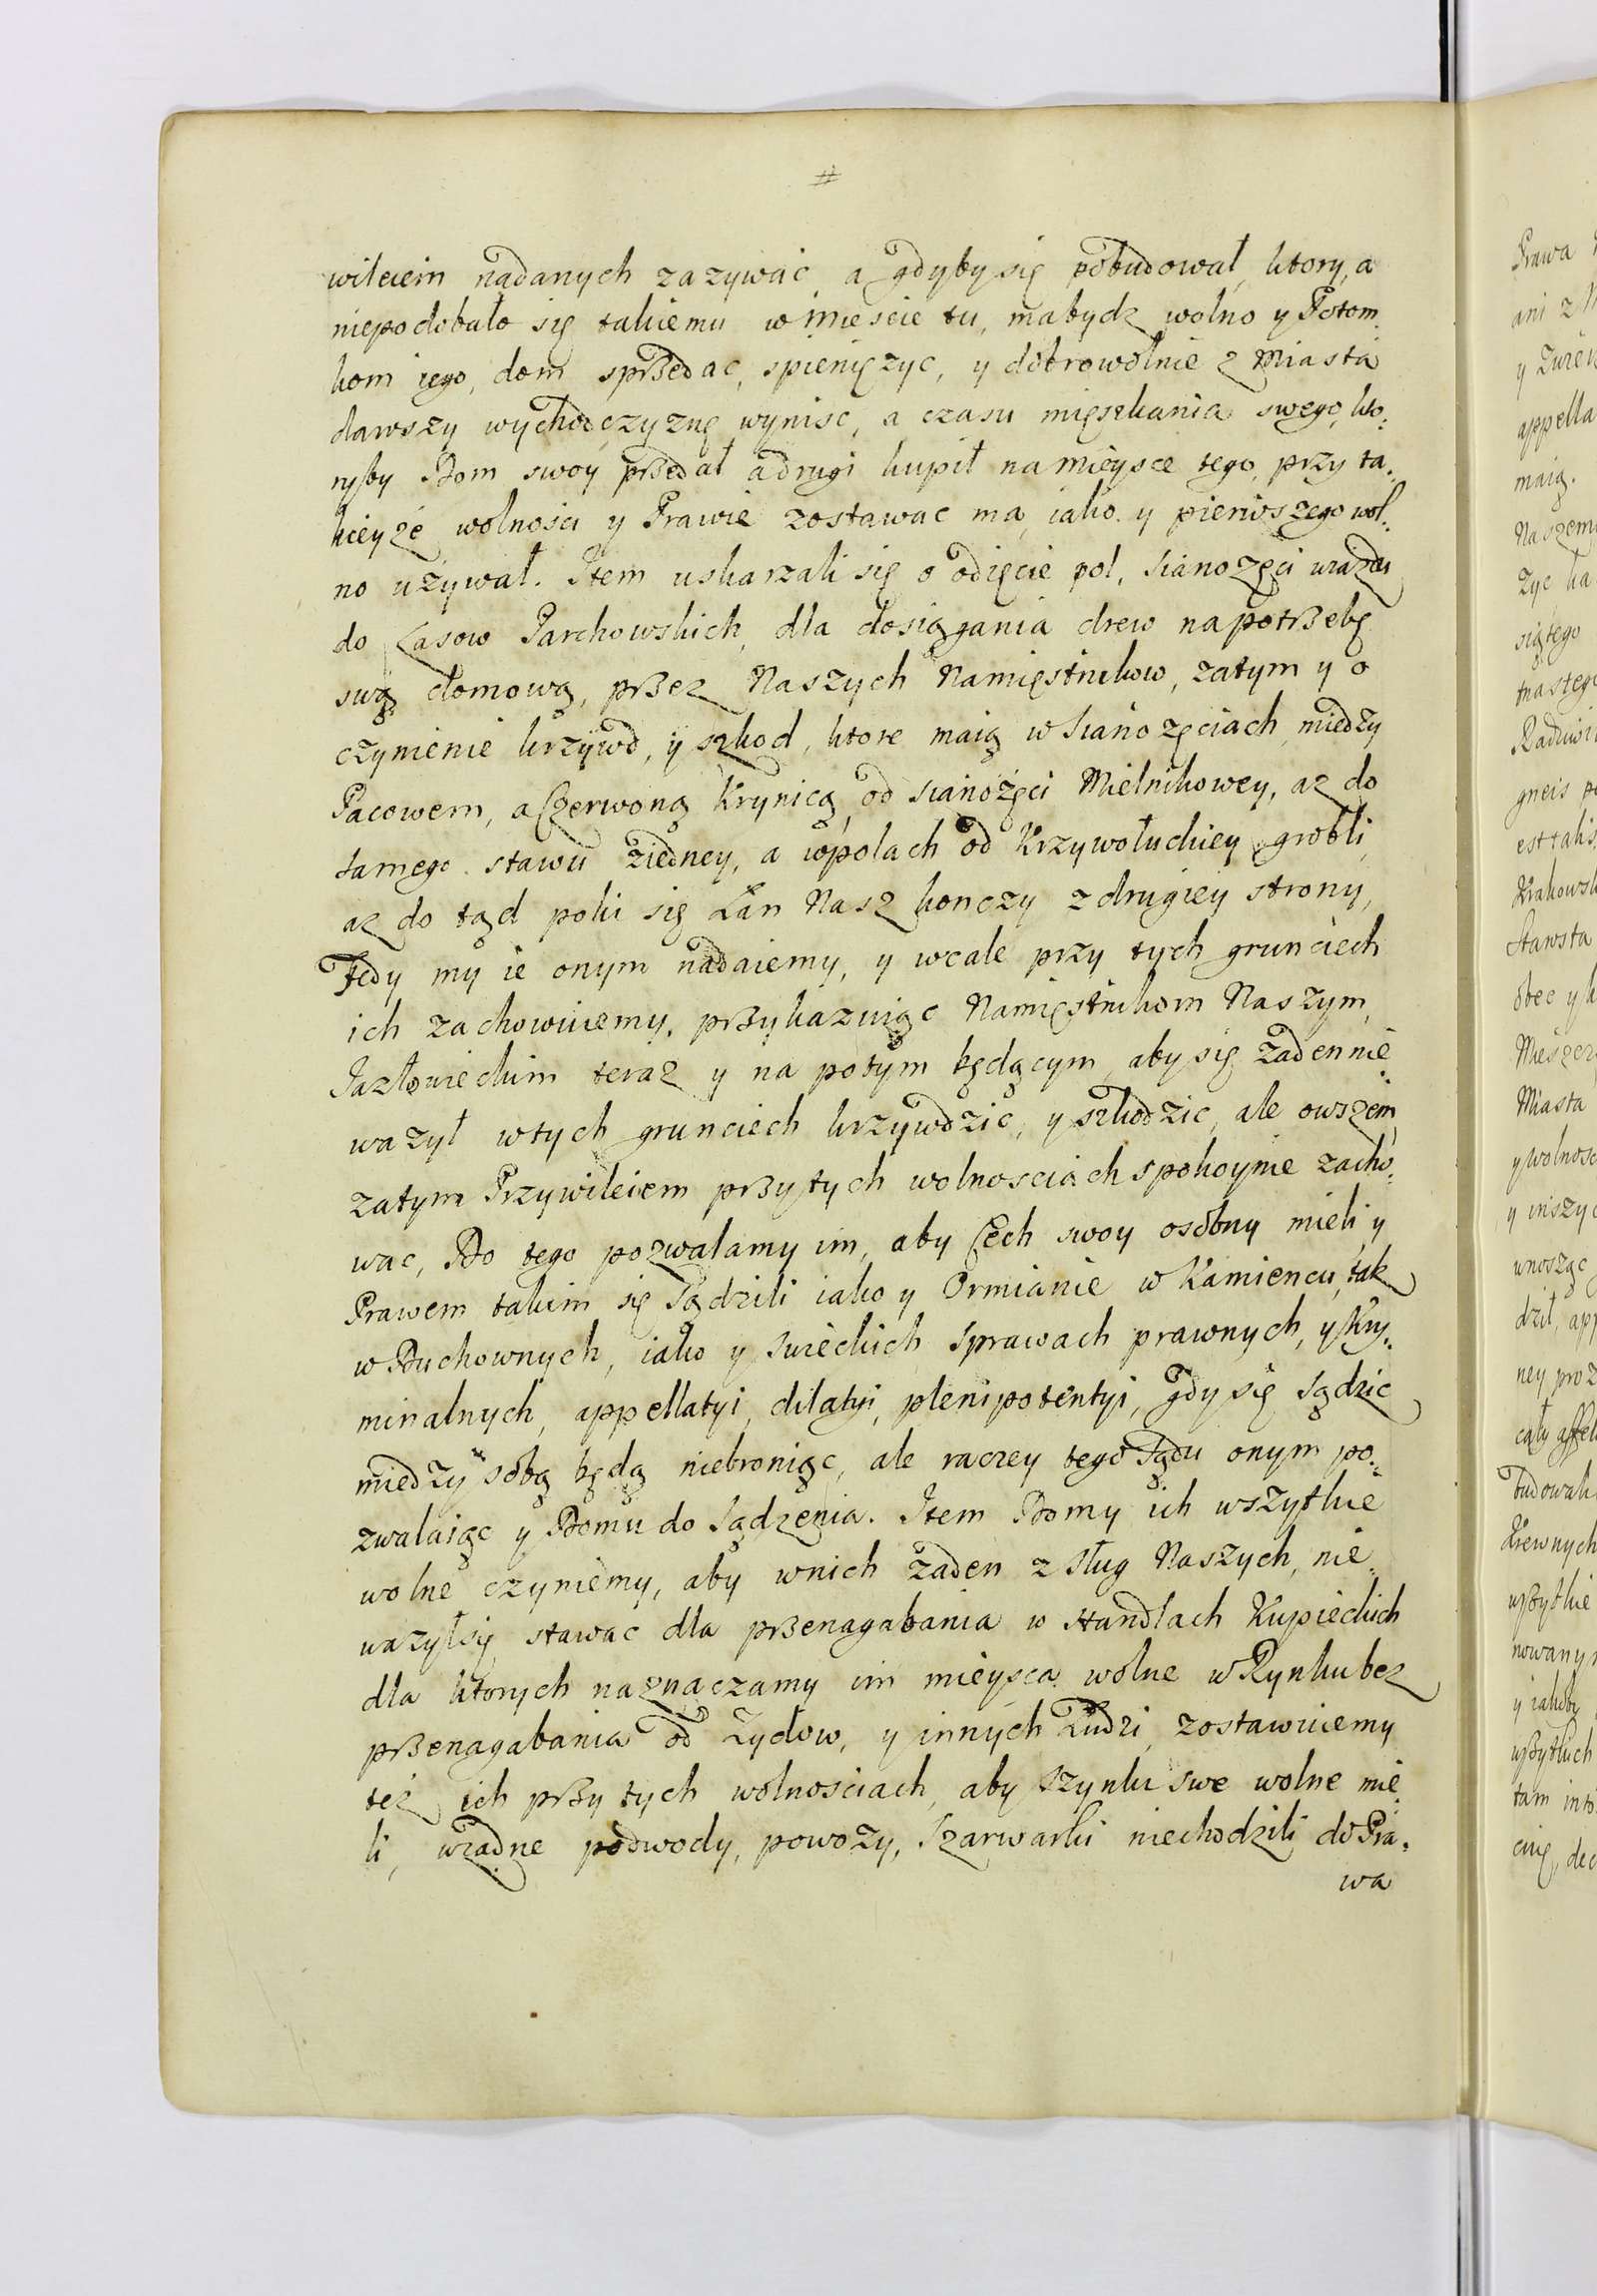 #
wileiem nadanych zazywać, a gdyby się pobudował, ktory, a
niepodobało się takiemu w Miescie tu, ma bydz wolno y Potom„
kom iego, dom sprzedac, spieniężyc, y dobrowolnie z Miasta
dawszy wychodczyznę wynisc, a czasu mięszkania swego, kto„
ryby Dom swoy przedał a drugi kupił na mieysce tego, przy ta„
kieyże wolnosci y Prawie zostawac ma, iako y pierwszego wol„
no używał. Item uskarzali się o odięcie pol, sianozęci wiazdu
do Lasow Parchowskich, dla dosiągania drew na potrzebę
swą domową, przez Naszych Namięstnikow, zatym y o
czynienie krzywd, y szkod, ktore maią w Sianozęciach między
Pacowem, a Czerwoną Krynicą, od sianożęci Mielnikowey, az do
samego stawu ziedney, a w polach od Krzywołuckiey grobli,
az do tąd poki się Łan Nasz konczy z drugiey strony,
Tedy my ie onym nadaiemy, y wcale przy tych grunciech
ich zachowuiemy, przykazuiąc Namięstnikom Naszym,
Jazłowieckim teraz y na potym będącym, aby się żaden nie„
ważył w tych grunciech krzywdzic, y szkodzic, ale owszem,
zatym Przywileiem przy tych wolnosciach spokoynie zacho„
wac, Do tego pozwalamy im, aby Cech swoy osobny mieli, y
Prawem takim się Sądzili iako y Ormianie w Kamiencu, tak
w Duchownych, iako y swieckich sprawach prawnych, y Kry„
minalnych, appellatyi, dilatyi, plenipotentyi, gdy się Sądzic
między sobą będą niebroniąc, ale raczey tego Sądu onym po„
zwalaiąc y Domu do Sądzenia. Item Domy ich wszytkie
wolne czyniemy, aby w nich żaden z Sług Naszych, nie„
ważył się stawac dla przenagabania w Handlach Kupieckich
dla ktorych naznaczamy im mieysca wolne w Rynku bez
przenagabania od Żydow, y innych Ludzi, zostawuiemy
tez ich przy tych wolnosciach, aby Szynki swe wolne mie„
li, wżadne podwody, powozy, Szarwarki niechodzili do Pra„
wa
Prawa
ani z
appella
maią.
Naszem
życ
się tego
gneis
Krakowsk
obec y
Miasta
y wolnosc
y inszyc
unosząc
dził, app
ney
cały
budowali
Krewnych
wszytkie
nowany
y iakoby
wszytkich
tam